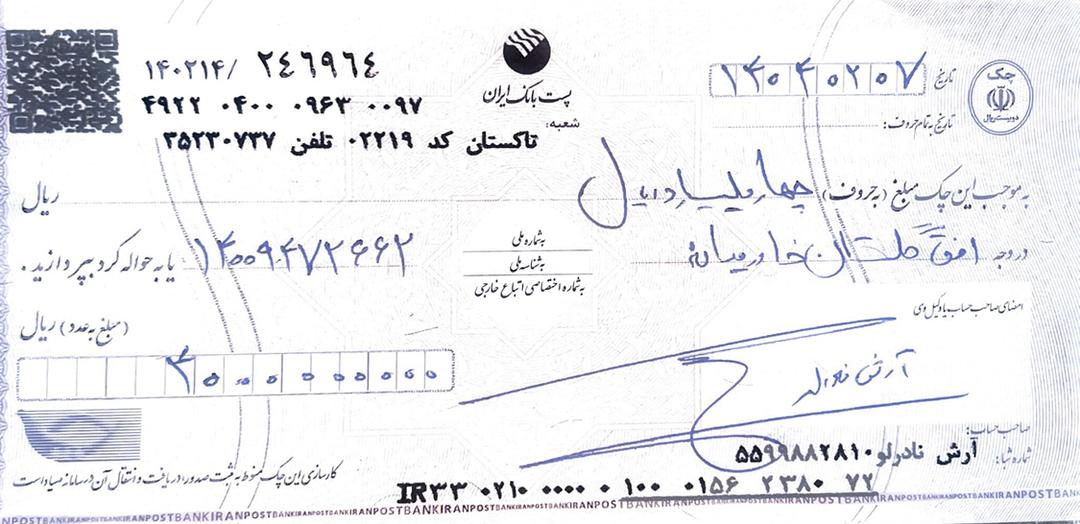 ۱۴۰۲۱۴/ ۲۴۶۹۶۴
۴۹۲۲ ۰۴۰۰ ۰۹۶۳ ۰۰۹۷
پست بانک ایران
شعبه: تاکستان کد ۰۲۲۱۹ تلفن ۳۵۲۳۰۷۳۷
تاریخ ۱۴۰۴۰۲۰۷
چک
دویست ریال
تاریخ به تمام حروف:
به موجب این چک مبلغ (به حروف) چهار میلیارد ریال ریال
در وجه افق خاورمیانه
به شماره ملی
به شناسه ملی
به شماره اختصاصی اتباع خارجی
۱۴۰۰۹۴۷۲۶۶۲ یا به حواله کرد بپردازید.
(مبلغ به عدد) ریال
۴۰۰۰۰۰۰۰۰۰
امضای صاحب حساب یا وکیل وی
آرش نادرلو
صاحب حساب:
آرش نادرلو ۵۵۹۹۸۸۲۸۱۰
شماره شبا:
IR۳۳ ۰۲۱۰ ۰۰۰۰ ۰ ۱۰۰ ۰۱۵۶ ۲۳۸۰ ۷۲
کارسازی این چک منوط به ثبت صدور، دریافت و انتقال آن در سامانه صیاد است
POSTBANKIRANPOSTBANKIRANPOSTBANKIRANPOSTBANKIRAN